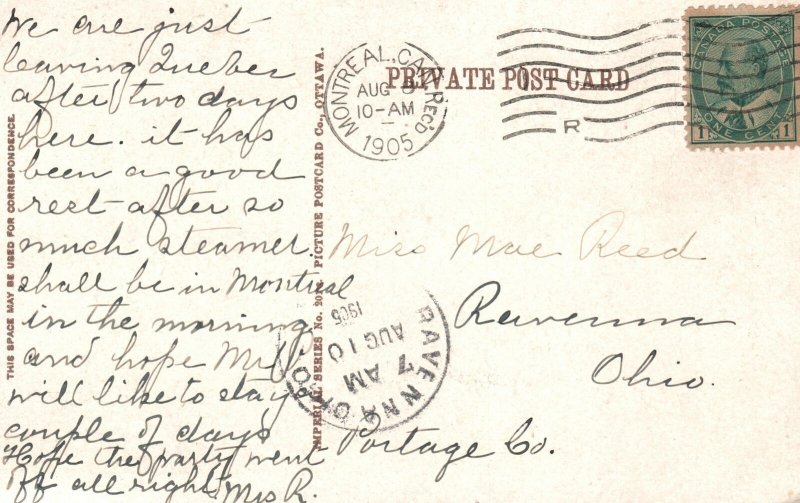 We are just
leaving Quebec
after two days
here. it has
been a good
rest after so
much steamer.
shall be in Montreal
in the morning
and hope
will like to stay
couple of days
Hope the party went
off all right. Mrs R.
THIS SPACE MAY BE USED FOR CORRESPONDENCE.
IMPERIAL SERIES No. PICTURE POSTCARD Co., OTTAWA.
PRIVATE POST CARD
MONTREAL, CAN. REC'D
AUG
10-AM
1905
R
CANADA POSTAGE
1 ONE CENT 1
Miss Mae Reed
Ravenna
Ohio.
Portage Co.
RAVENNA OHIO
7 AM
AUG 10
1905